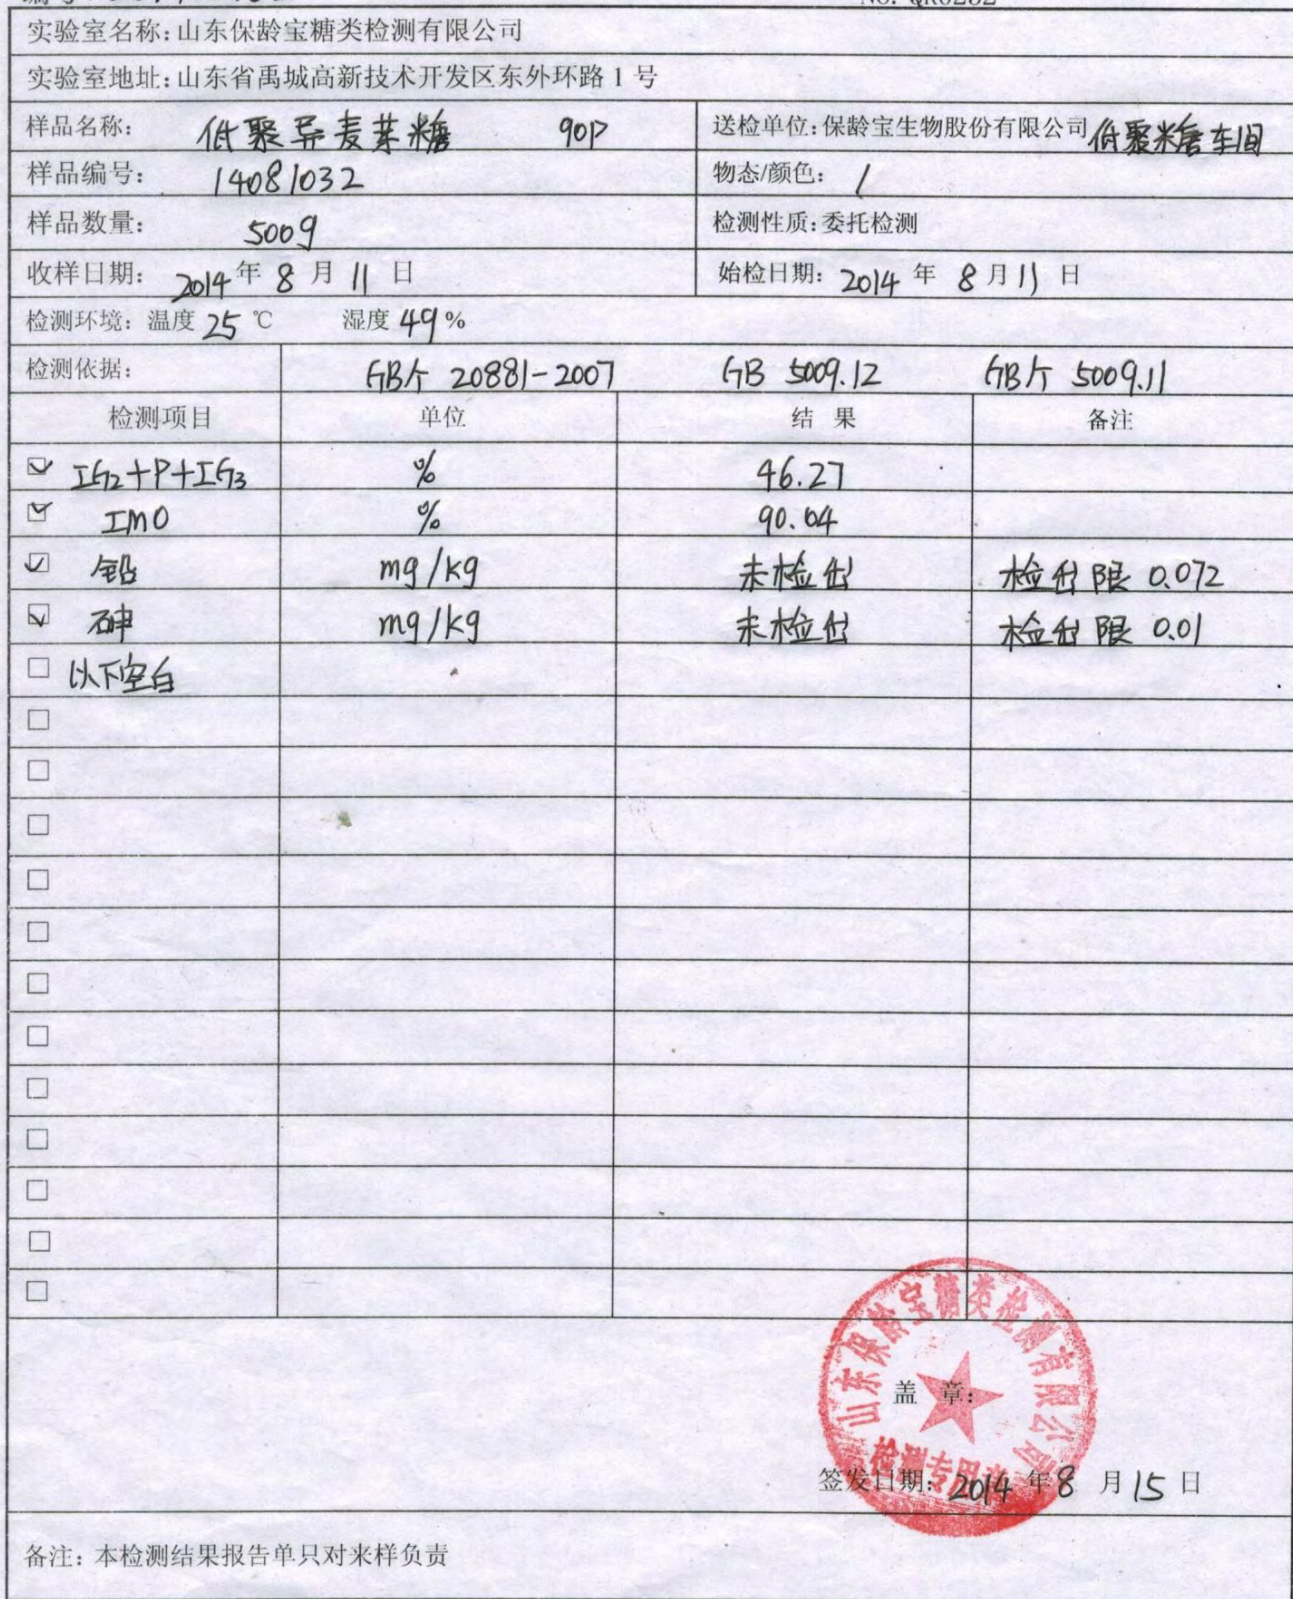 实验室名称:山东保龄宝糖类检测有限公司
实验室地址:山东省禹城高新技术开发区东外环路 1 号
样品名称: 低聚异麦芽糖 90P 送检单位:保龄宝生物股份有限公司 低聚糖车间
样品编号: 14081032 物态/颜色: /
样品数量: 500g 检测性质:委托检测
收样日期: 2014 年 8 月 11 日 始检日期: 2014 年 8 月 11 日
检测环境: 温度 25 ℃ 湿度 49 %
检测依据: GB/T 20881-2007 GB 5009.12 GB/T 5009.11
检测项目 单位 结 果 备注
☑ IG2+P+IG3 % 46.27
☑ IMO % 90.04
☑ 铅 mg/kg 未检出 检出限 0.072
☑ 砷 mg/kg 未检出 检出限 0.01
□ 以下空白
□
□
□
□
□
□
□
□
□
□
□
□
山东保龄宝糖类检测有限公司
盖 章:
检测专用章
签发日期: 2014 年 8 月 15 日
备注: 本检测结果报告单只对来样负责